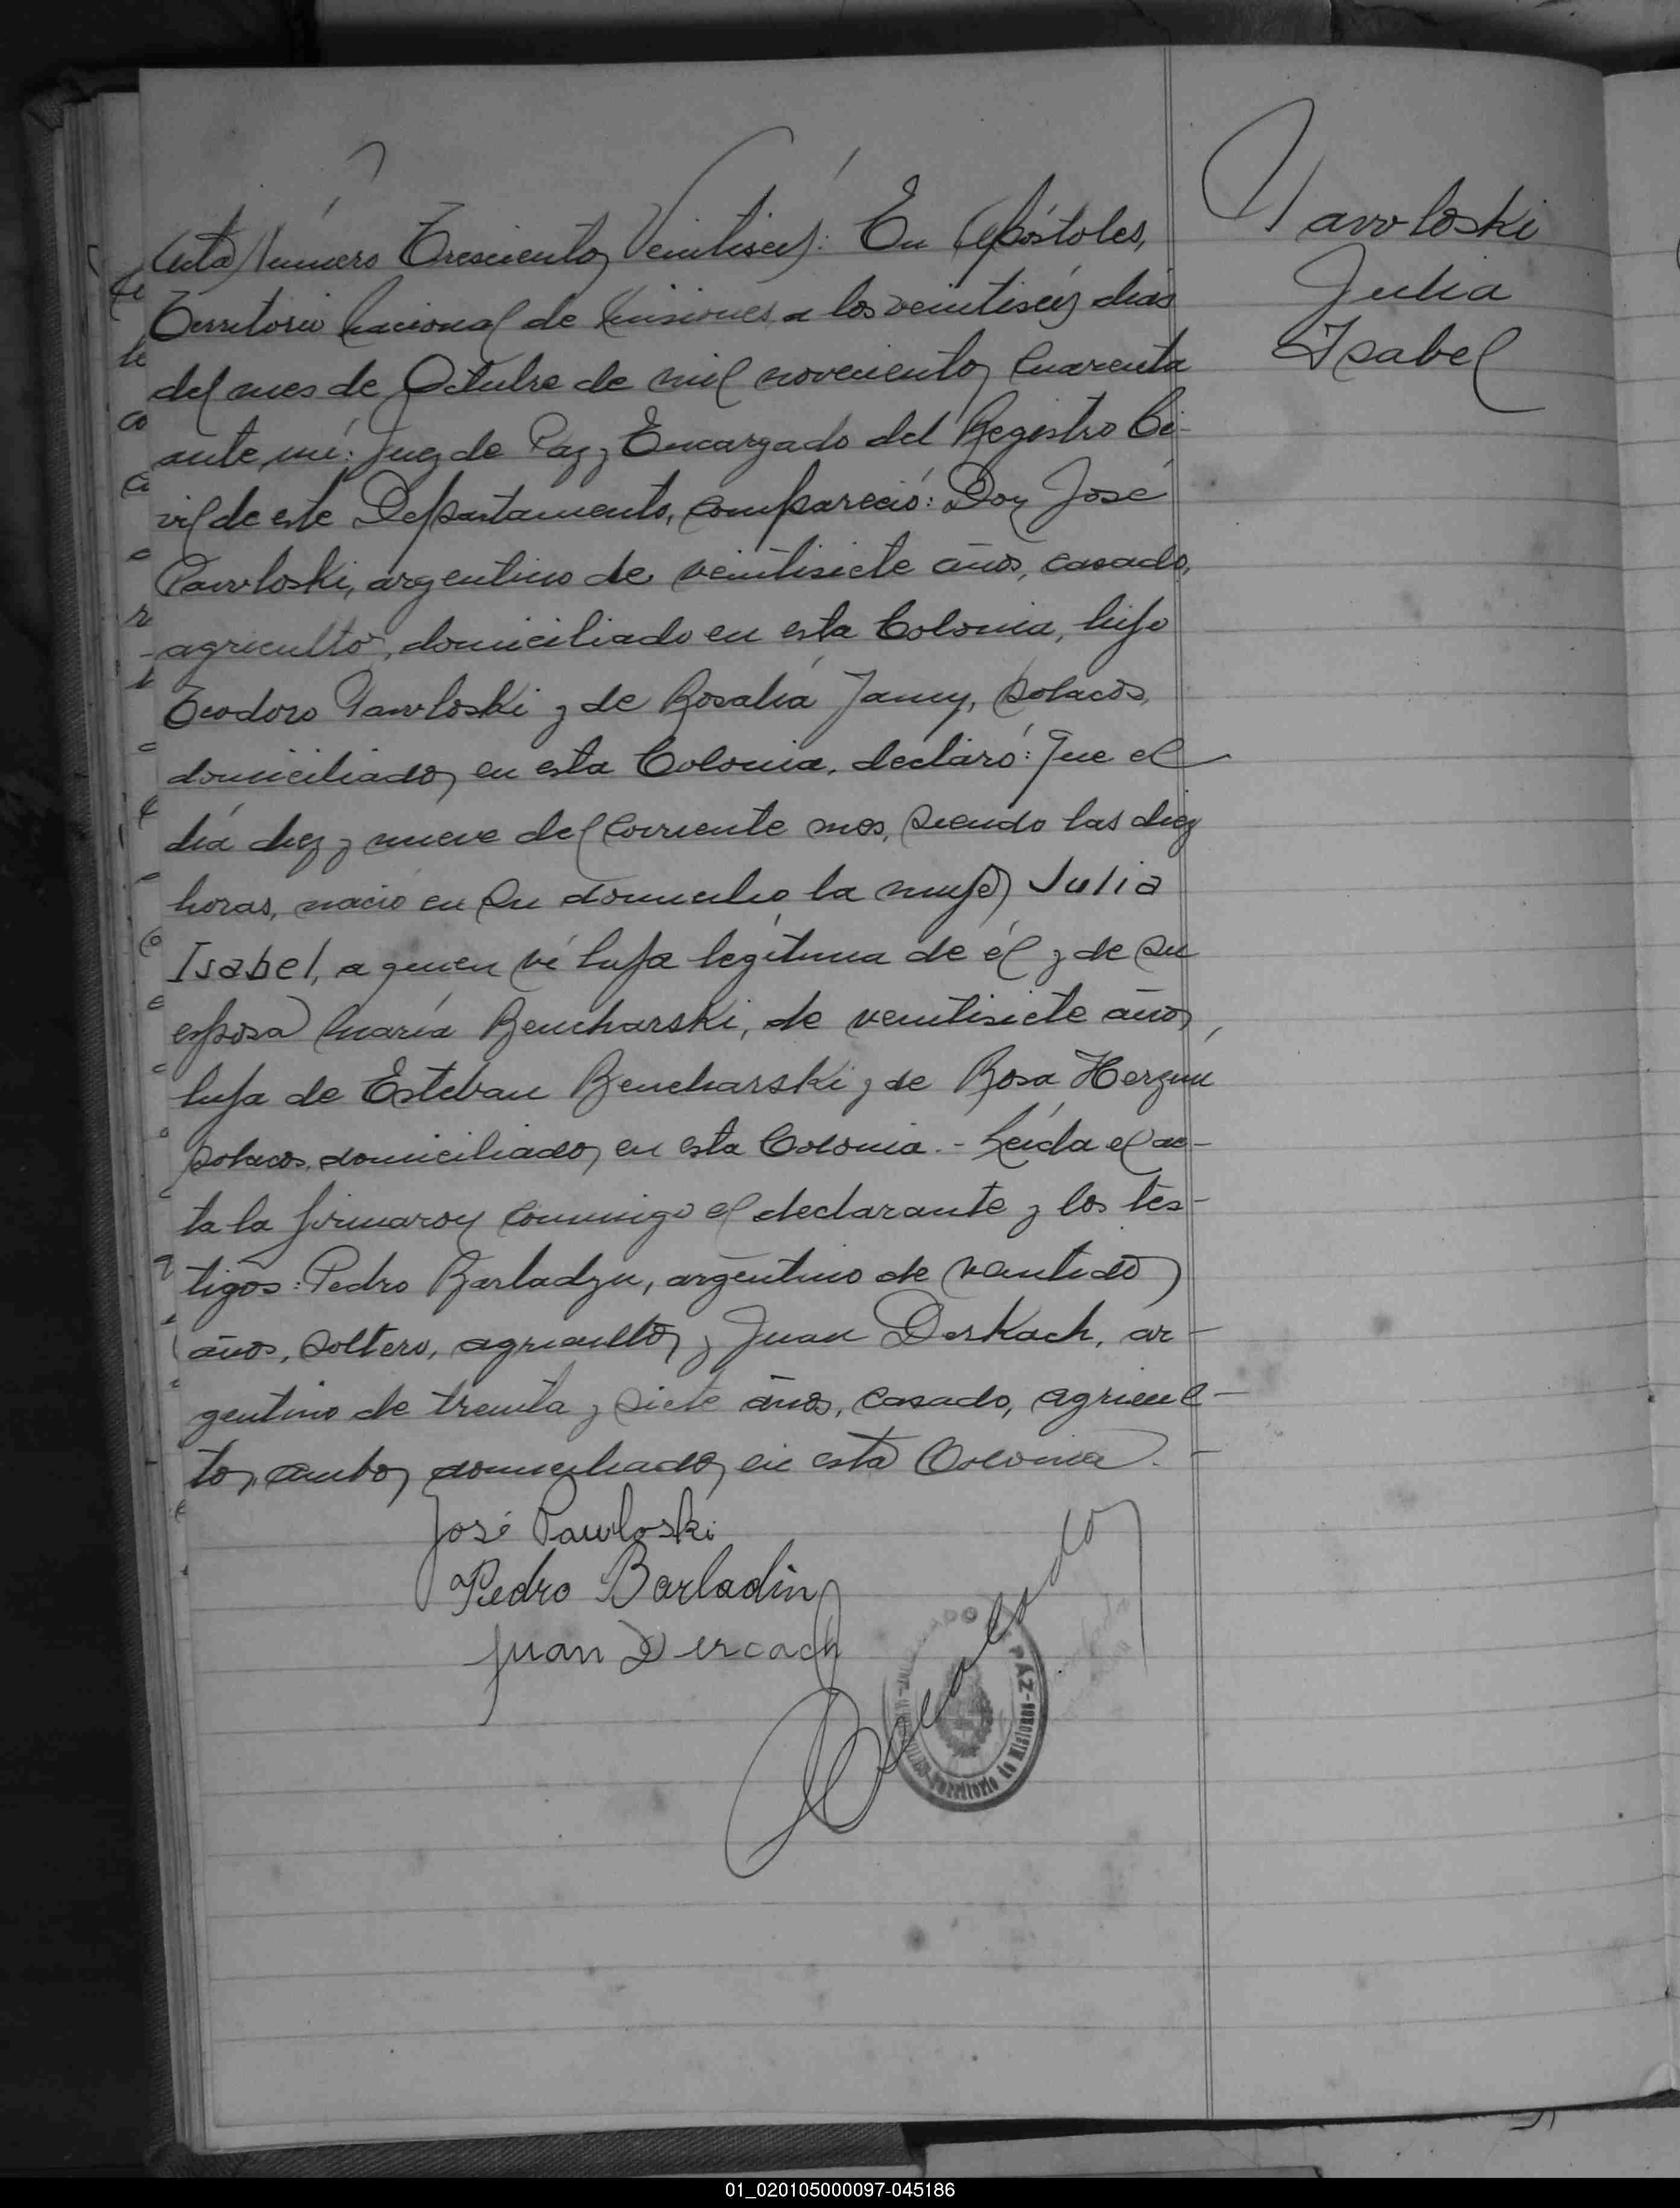 Pawloski
Julia
Isabel
Acta Número Trescientos Veintiseis: En Apóstoles,
Territorio Nacional de Misiones a los veintiseis dias
del mes de Octubre de mil novecientos Cuarenta
ante mí: Juez de Paz y Encargado del Registro Ci-
vil de este Departamento, compareció: Don José
Pawloski, argentino de veintisiete años, casado,
agricultor, domiciliado en esta Colonia, hijo
Teodoro Pawloski y de Rosalía Jancy, polacos,
domiciliados en esta Colonia, declaró: Que el
día diez y nueve del corriente mes, siendo las diez
horas, nació en su domicilio la mujer Julia
Isabel, a quien ví hija legítima de él y de su
esposa María Bencharski, de veintisiete años,
hija de Esteban Bencharski y de Rosa
polacos, domiciliados en esta Colonia.- Leída el ac-
ta la firmaron conmigo el declarante y los tes-
tigos: Pedro Barladyn, argentino de veintidos
años, soltero, agricultor y Juan Derkach, ar-
gentino de treinta y siete años, casado, agricul-
tor, ambos domiciliados en esta Colonia.-
José Pawloski
Pedro Barladin
Juan Dercach
PAZ
Territorio de Misiones
01_020105000097-045186